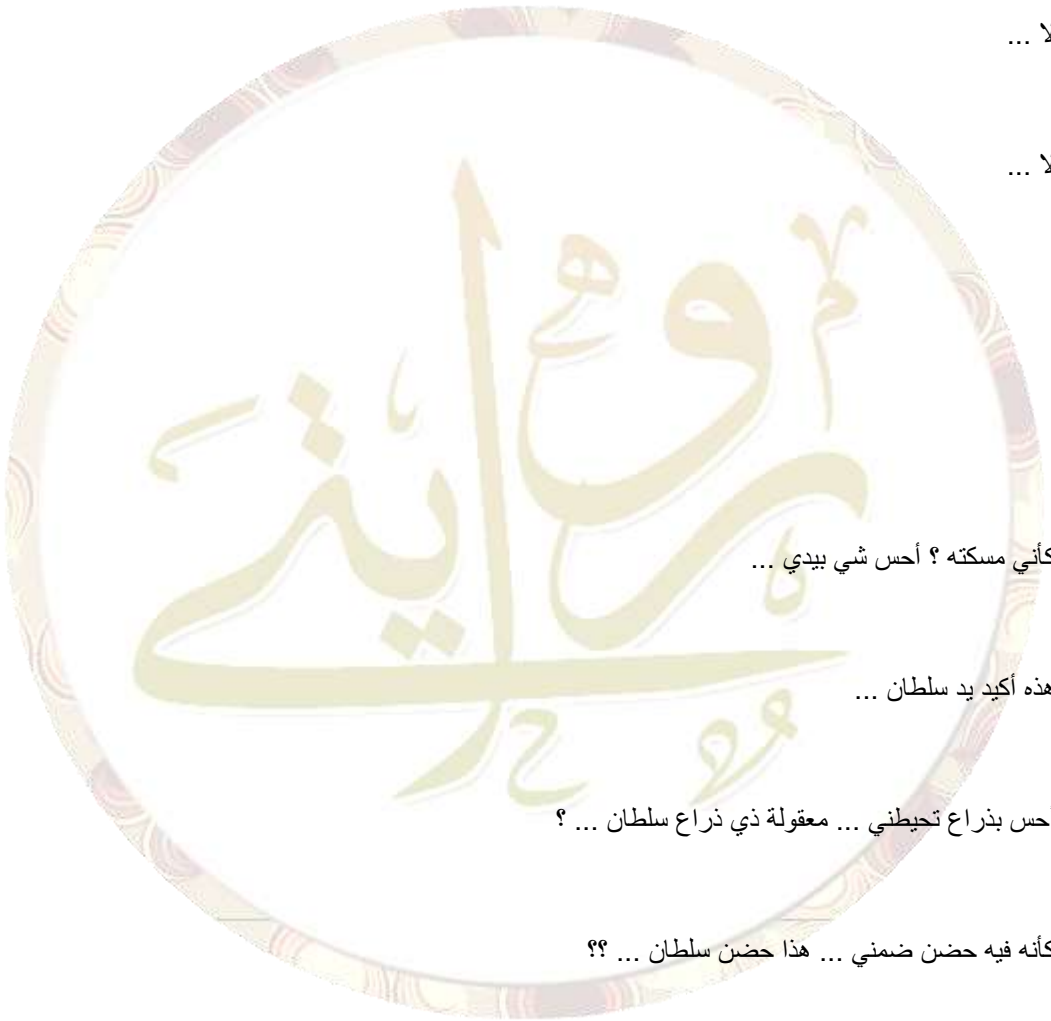 لا ...
لا ...
كأني مسكته ؟ أحس شي بيدي ...
هذه أكيد يد سلطان ...
أحس بذراع تحيطني ... معقولة ذي ذراع سلطان ... ؟
كأنه فيه حضن ضمني ... هذا حضن سلطان ... ؟؟
روايتي